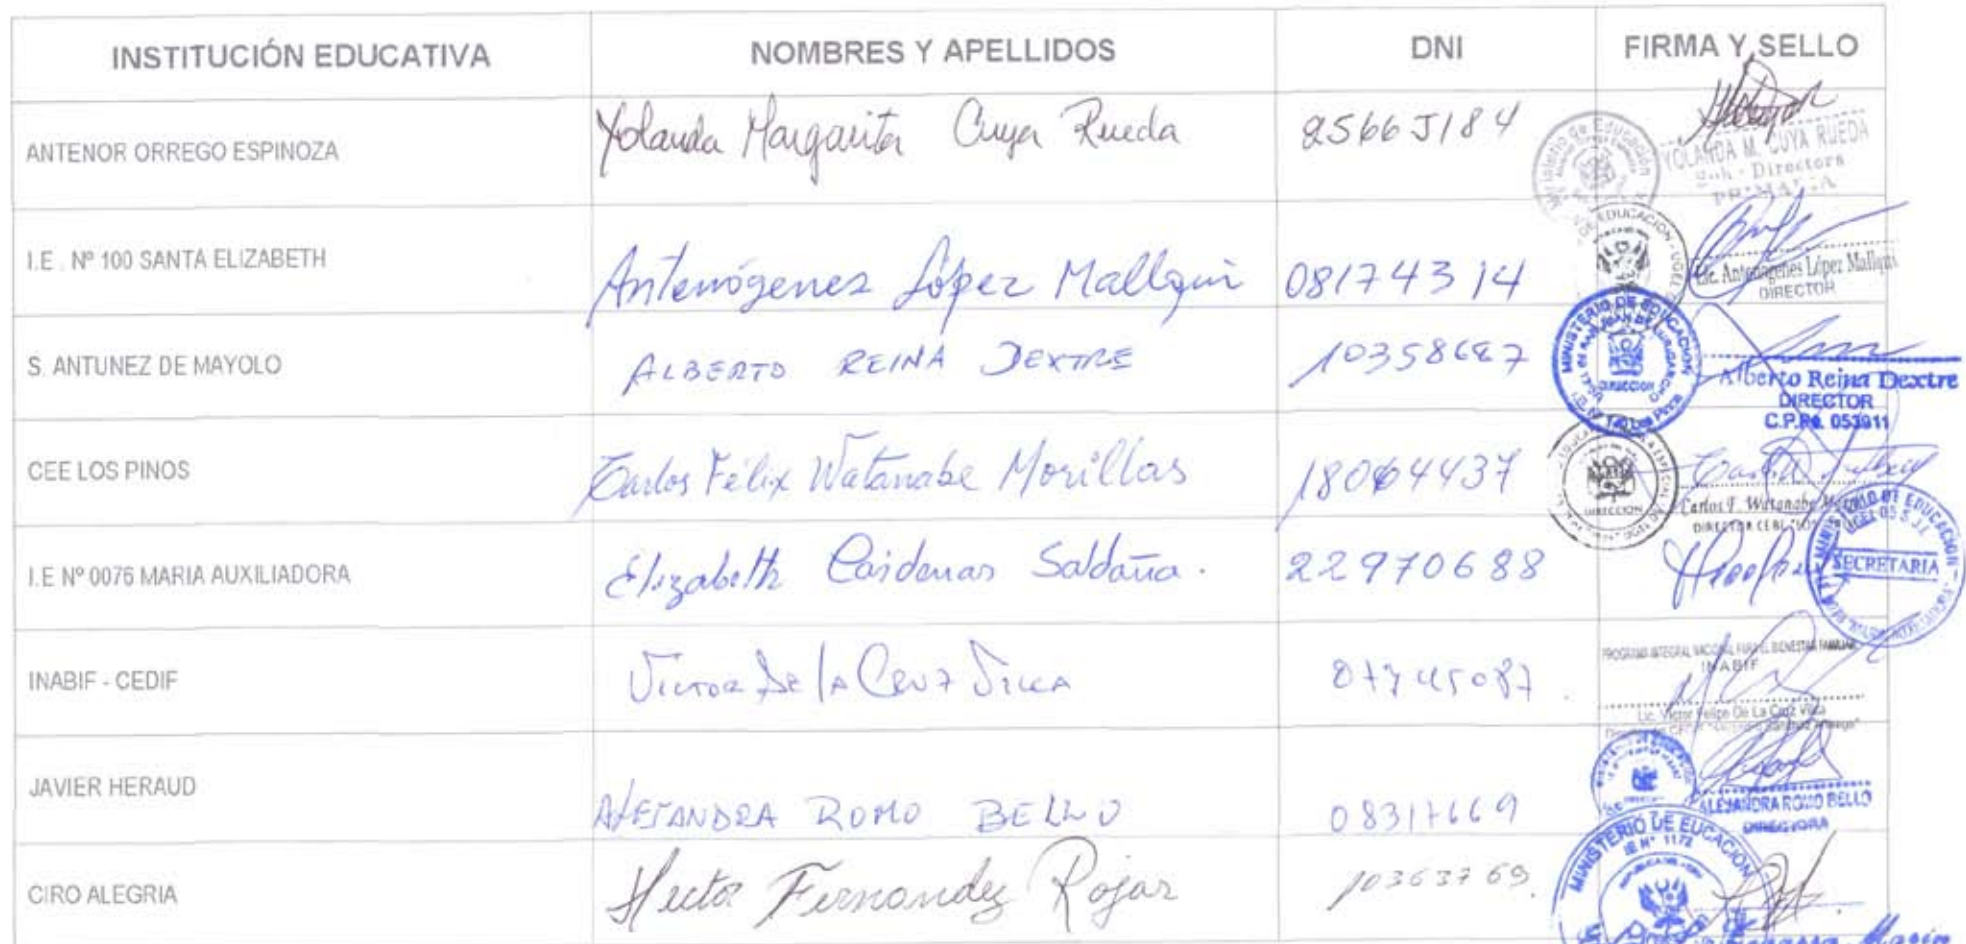 INSTITUCIÓN EDUCATIVA NOMBRES Y APELLIDOS DNI FIRMA Y SELLO
ANTENOR ORREGO ESPINOZA Yolanda Margarita Cuya Rueda 25665184
YOLANDA M. CUYA RUEDA
Directora
PRIMARIA
I.E. Nº 100 SANTA ELIZABETH Antenógenes López Mallqui 08174314
Lic. Antenógenes López Mallqui
DIRECTOR
S. ANTUNEZ DE MAYOLO ALBERTO REINA DEXTRE 10358687
MINISTERIO DE EDUCACION
DIRECCION
Alberto Reina Dextre
DIRECTOR
C.P.Pe. 053911
CEE LOS PINOS Carlos Félix Watanabe Morillas 18064437
DIRECCION
Carlos F. Watanabe
DIRECTOR
I.E Nº 0076 MARIA AUXILIADORA Elizabeth Cárdenas Saldaña. 22970688
MINISTERIO DE EDUCACION
SECRETARIA
INABIF - CEDIF VICTOR DE LA CRUZ VILCA
PROGRAMA INTEGRAL NACIONAL PARA EL BIENESTAR FAMILIAR
INABIF
Lic. Victor Felipe De La Cruz Vilca
JAVIER HERAUD ALEJANDRA ROMO BELLO 08317669
ALEJANDRA ROMO BELLO
DIRECTORA
CIRO ALEGRIA Hector Fernandez Rojas 10363769.
MINISTERIO DE EUCACION
IE Nº 1172